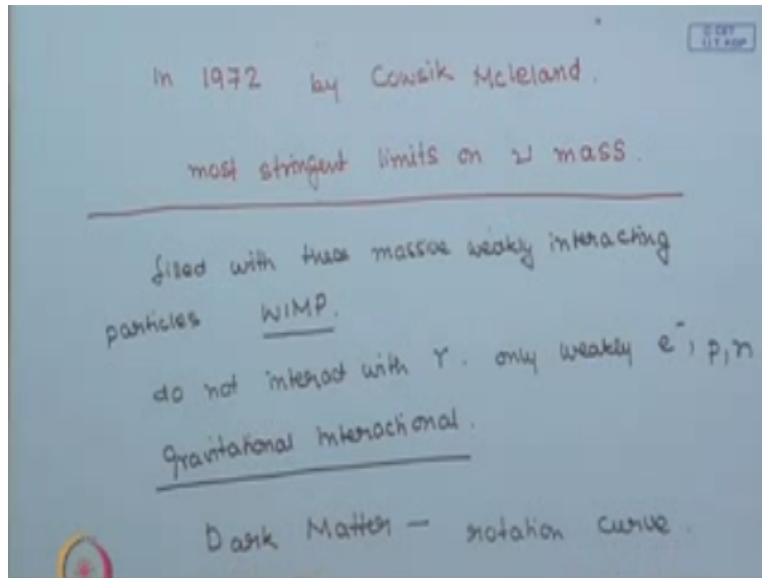 In 1972 by Cowsik Mcleland.
most stringent limits on ν mass.
filled with these massive weakly interacting
particles WIMP.
do not interact with γ. only weakly e⁻, p, n
Gravitational interactional.
Dark Matter — rotation curve.